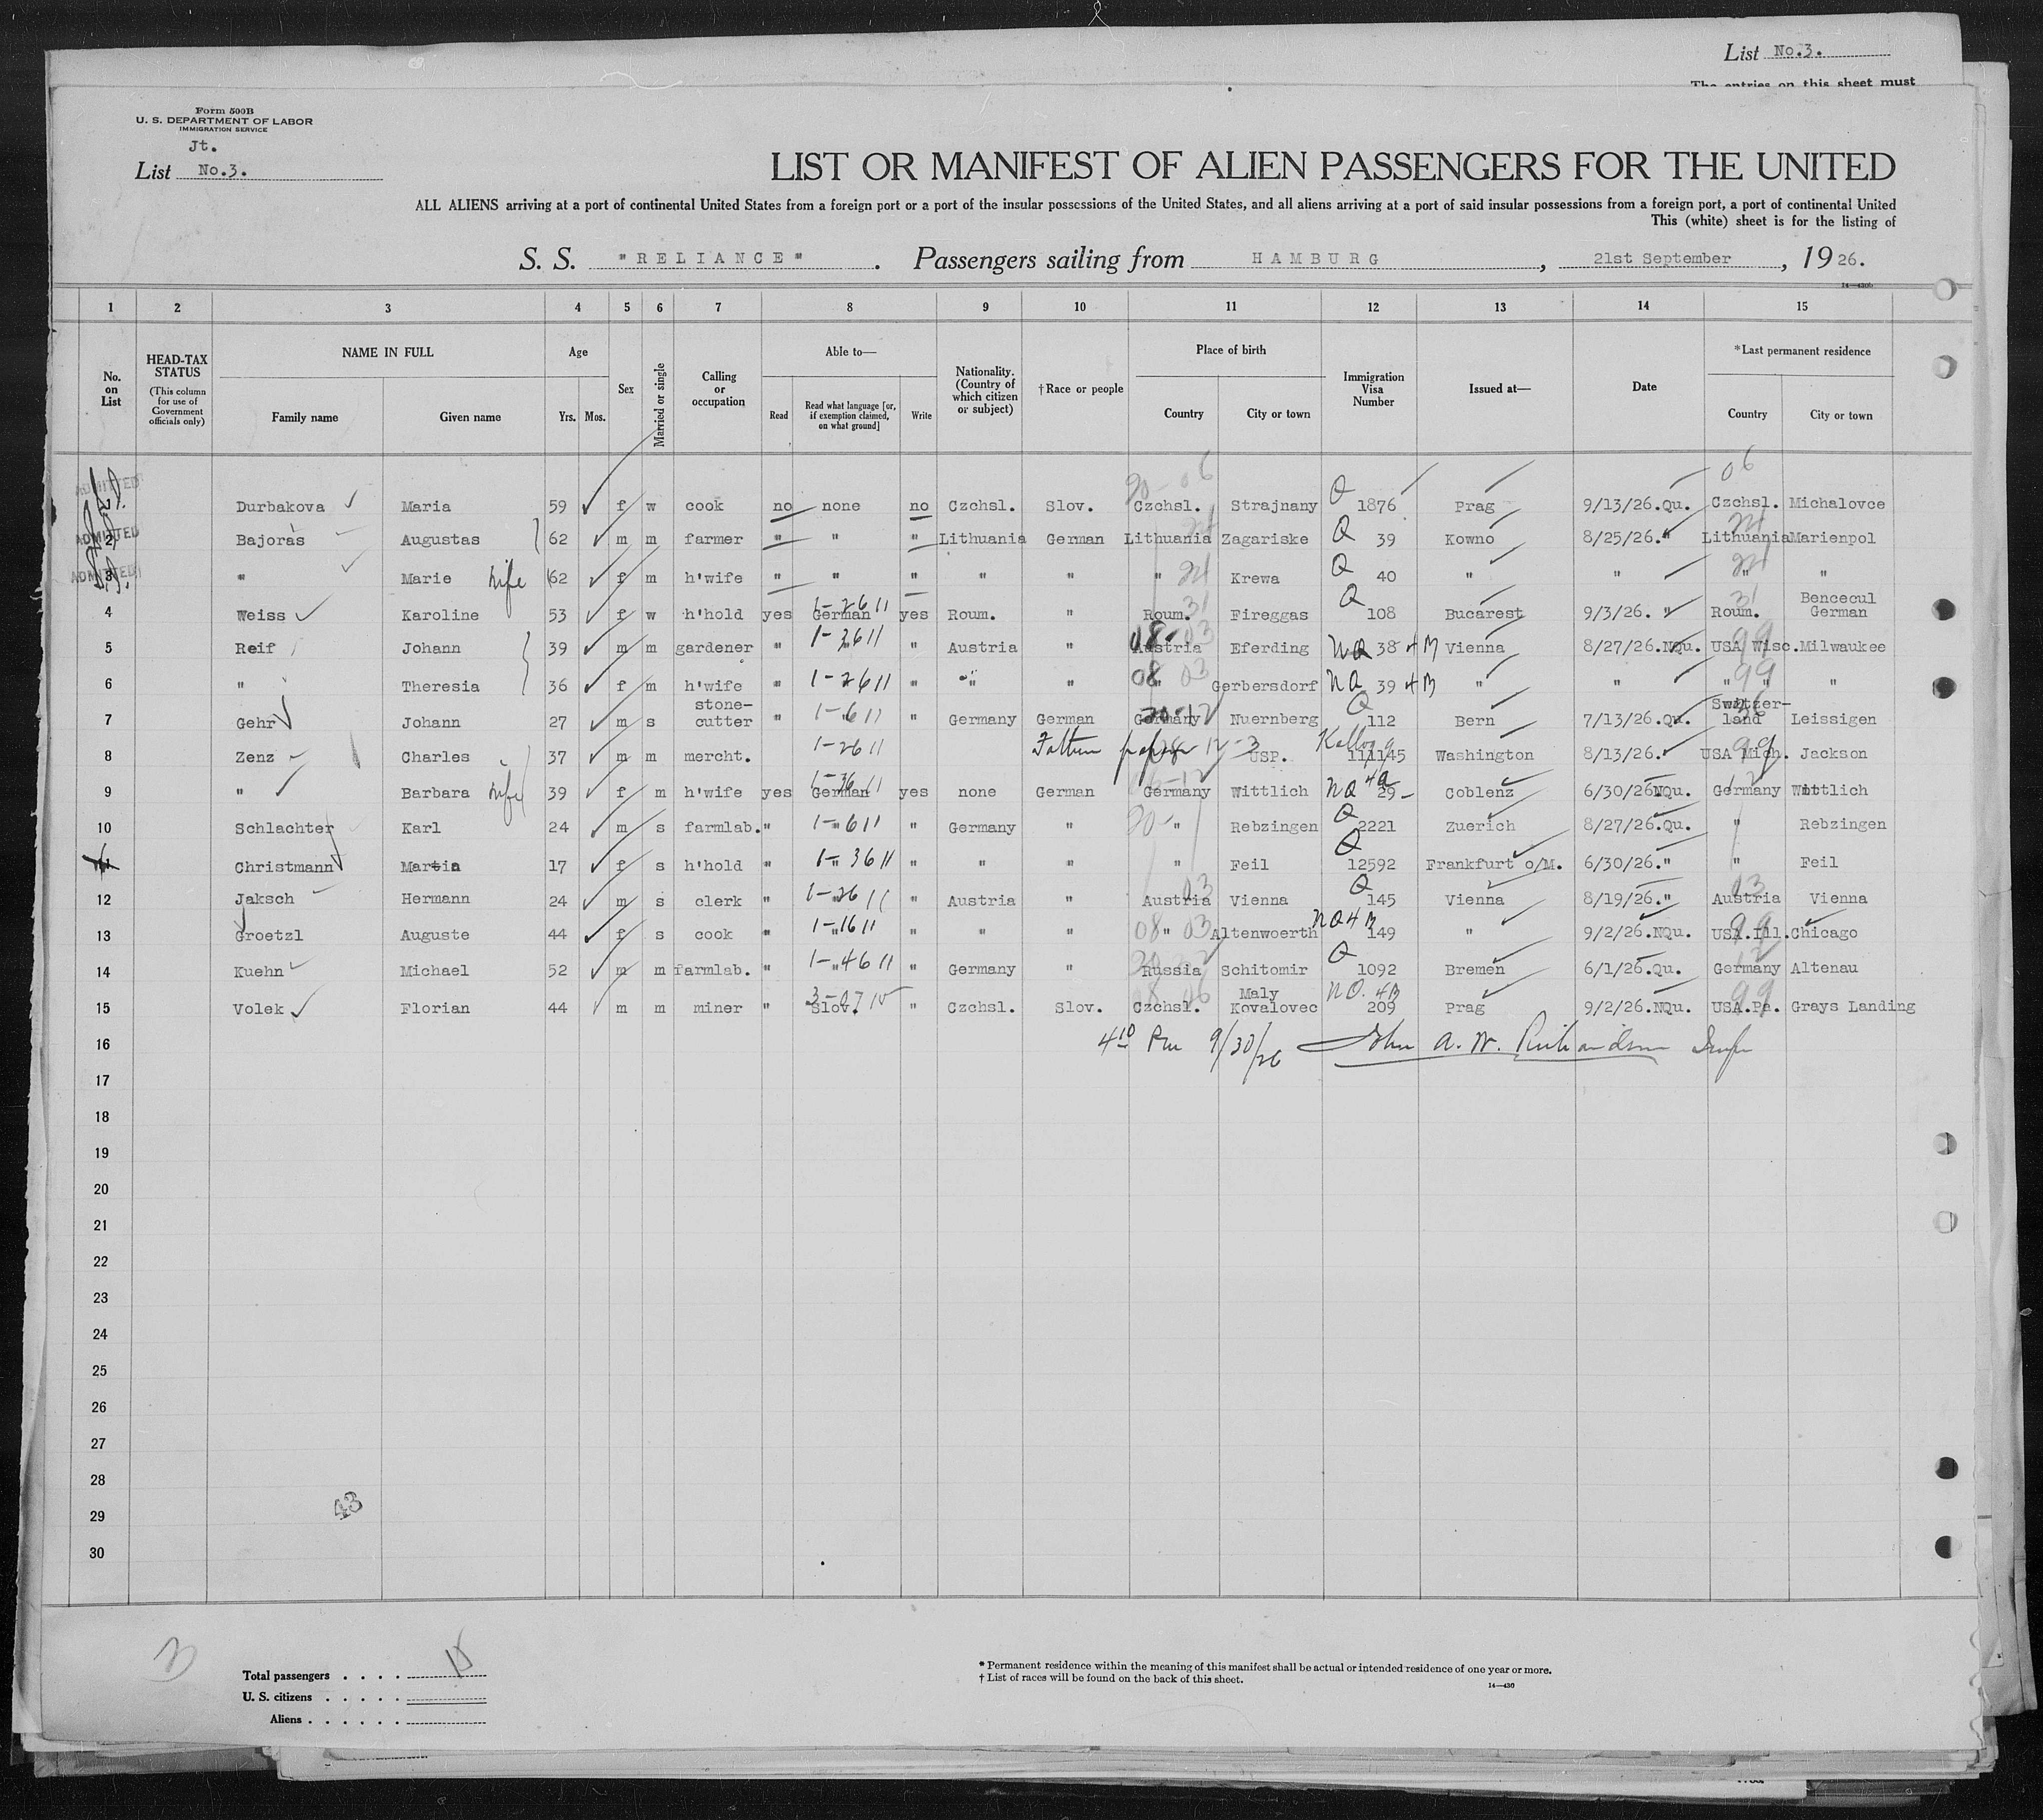 List No.3.
The entries on this sheet must
Form 500B
U. S. DEPARTMENT OF LABOR
IMMIGRATION SERVICE
Jt.
List No.3.
LIST OR MANIFEST OF ALIEN PASSENGERS FOR THE UNITED
ALL ALIENS arriving at a port of continental United States from a foreign port or a port of the insular possessions of the United States, and all aliens arriving at a port of said insular possessions from a foreign port, a port of continental United
This (white) sheet is for the listing of
S. S. "RELIANCE". Passengers sailing from HAMBURG, 21st September, 1926.
14—430b
1 2 3 4 5 6 7 8 9 10 11 12 13 14 15
No. on List
HEAD-TAX STATUS (This column for use of Government officials only)
NAME IN FULL Family name Given name
Age Yrs. Mos.
Sex
Married or single
Calling or occupation
Able to— Read Read what language [or, if exemption claimed, on what ground] Write
Nationality. (Country of which citizen or subject)
†Race or people
Place of birth Country City or town
Immigration Visa Number
Issued at—
Date
*Last permanent residence Country City or town
20-06 06
ADMITTED 1 Durbakova Maria 59 f w cook no none no Czchsl. Slov. Czchsl. Strajnany Q 1876 Prag 9/13/26.Qu. Czchsl. Michalovce
ADMITTED 2 Bajoras Augustas 62 m m farmer " " " Lithuania German Lithuania 24 Zagariske Q 39 Kowno 8/25/26." Lithuania 24 Marienpol
ADMITTED 3 " Marie wife 62 f m h'wife " " " " " " 24 Krewa Q 40 " " " 24 "
4 Weiss Karoline 53 f w h'hold yes German 1-2611 yes Roum. " Roum. 31 Fireggas Q 108 Bucarest 9/3/26. " Roum. 31 Bencecul German
5 Reif Johann 39 m m gardener " " 1-3611 " Austria " Austria 08-03 Eferding NQ 38 4B Vienna 8/27/26.NQu. USA Wisc. 99 Milwaukee
6 " Theresia 36 f m h'wife " 1-2611 " " " " 08 03 Gerbersdorf NQ 39 4B " " " " 99 "
7 Gehr Johann 27 m s stone-cutter " " 1-611 " Germany German Germany 20-12 Nuernberg Q 112 Bern 7/13/26.Qu. Switzer-land 36 Leissigen
8 Zenz Charles 37 m m mercht. 1-2611 USP. Kellogg 111145 Washington 8/13/26. USA Mich. 99 Jackson
9 " Barbara wife 39 f m h'wife yes German 1-3611 yes none German Germany Wittlich NQ 4a 29- Coblenz 6/30/26NQu. Germany 12 Wittlich
10 Schlachter Karl 24 m s farmlab. " " 1-611 " Germany " " 20- Rebzingen Q 2221 Zuerich 8/27/26.Qu. " Rebzingen
11 Christmann Martia 17 f s h'hold " " 1-3611 " " " " Feil Q 12592 Frankfurt o/M. 6/30/26." " Feil
12 Jaksch Hermann 24 m s clerk " " 1-2611 " Austria " Austria 03 Vienna Q 145 Vienna 8/19/26." Austria 03 Vienna
13 Groetzl Auguste 44 f s cook " " 1-1611 " " " " 08 03 Altenwoerth NQ4B 149 " 9/2/26.NQu. USA.Ill. 99 Chicago
14 Kuehn Michael 52 m m farmlab. " " 1-4611 " Germany " Russia Schitomir Q 1092 Bremen 6/1/26.Qu. Germany 12 Altenau
15 Volek Florian 44 m m miner " Slov. " Czchsl. Slov. Czchsl. 08 06 Maly Kovalovec NQ. 4B 209 Prag 9/2/26.NQu. USA.Pa. 99 Grays Landing
16 4 10 Pm 9/30/26 John A. W. Richardson Insp
17
18
19
20
21
22
23
24
25
26
27
28
29
30
43
Total passengers . . . .
U. S. citizens . . . . .
Aliens . . . . . .
* Permanent residence within the meaning of this manifest shall be actual or intended residence of one year or more.
† List of races will be found on the back of this sheet.
14—430